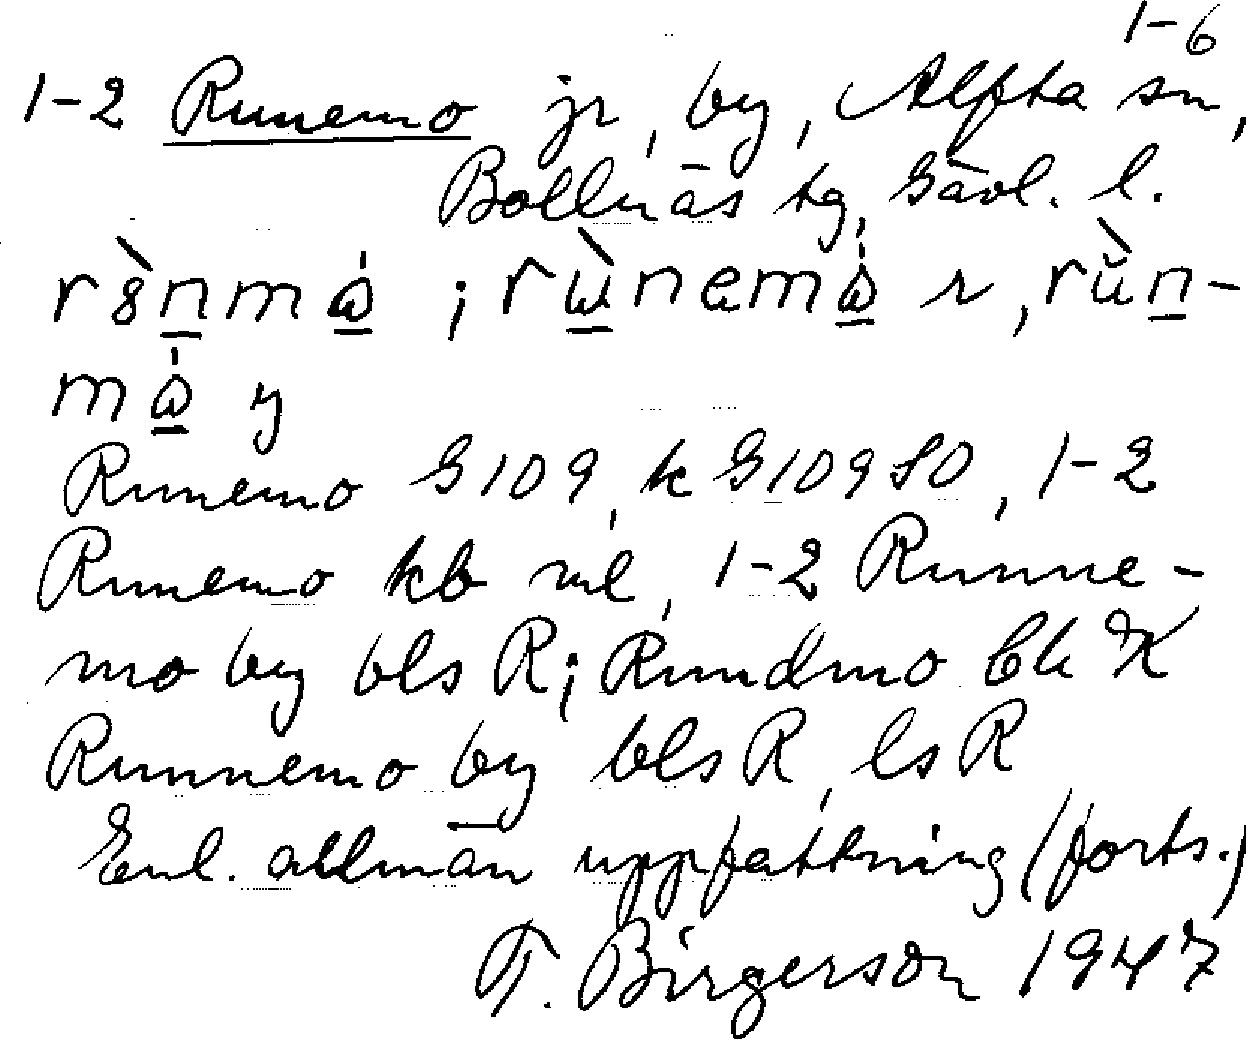 1-6
1-2 Runemo jr, by, Alfta sn,
Bollnäs tg, Gävl. l.
Runemo G109, k G109SO, 1-2
Runemo kb ml, 1-2 Runne-
mo by bls R; Rundmo bk K
Runnemo by bls R, ls R
Enl. allmän uppfattning (forts.)
T. Birgerson 1947